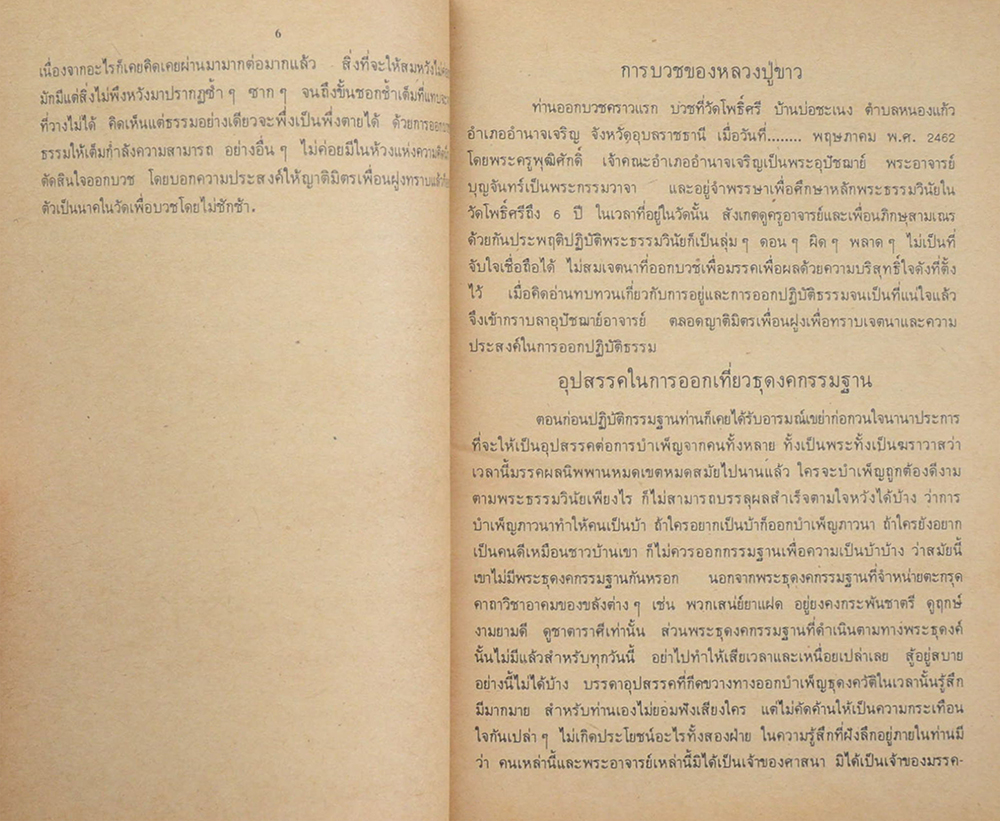 6
เนื่องจากอะไรก็เคยคิดเคยผ่านมามากต่อมากแล้ว สิ่งที่จะให้สมหวังไม่ค่อย
มักมีแต่สิ่งไม่พึงหวังมาปรากฏซ้ำ ๆ ซาก ๆ จนถึงขั้นชอกช้ำเต็มที่แทบจะ
ที่วางไม่ได้ คิดเห็นแต่ธรรมอย่างเดียวจะพึ่งเป็นพึ่งตายได้ ด้วยการออกบวช
ธรรมให้เต็มกำลังความสามารถ อย่างอื่น ๆ ไม่ค่อยมีในห้วงแห่งความคิด
ตัดสินใจออกบวช โดยบอกความประสงค์ให้ญาติมิตรเพื่อนฝูงทราบแล้ว
ตัวเป็นนาคในวัดเพื่อบวชโดยไม่ชักช้า.
การบวชของหลวงปู่ขาว
ท่านออกบวชคราวแรก บวชที่วัดโพธิ์ศรี บ้านบ่อชะเนง ตำบลหนองแก้ว
อำเภออำนาจเจริญ จังหวัดอุบลราชธานี เมื่อวันที่........ พฤษภาคม พ.ศ. 2462
โดยพระครูพุฒิศักดิ์ เจ้าคณะอำเภออำนาจเจริญเป็นพระอุปัชฌาย์ พระอาจารย์
บุญจันทร์เป็นพระกรรมวาจา และอยู่จำพรรษาเพื่อศึกษาหลักพระธรรมวินัยใน
วัดโพธิ์ศรีถึง 6 ปี ในเวลาที่อยู่ในวัดนั้น สังเกตดูครูอาจารย์และเพื่อนภิกษุสามเณร
ด้วยกันประพฤติปฏิบัติพระธรรมวินัยก็เป็นลุ่ม ๆ ดอน ๆ ผิด ๆ พลาด ๆ ไม่เป็นที่
จับใจเชื่อถือได้ ไม่สมเจตนาที่ออกบวชเพื่อมรรคเพื่อผลด้วยความบริสุทธิ์ใจดังที่ตั้ง
ไว้ เมื่อคิดอ่านทบทวนเกี่ยวกับการอยู่และการออกปฏิบัติธรรมจนเป็นที่แน่ใจแล้ว
จึงเข้ากราบลาอุปัชฌาย์อาจารย์ ตลอดญาติมิตรเพื่อนฝูงเพื่อทราบเจตนาและความ
ประสงค์ในการออกปฏิบัติธรรม
อุปสรรคในการออกเที่ยวธุดงคกรรมฐาน
ตอนก่อนปฏิบัติกรรมฐานท่านก็เคยได้รับอารมณ์เขย่าก่อกวนใจนานาประการ
ที่จะให้เป็นอุปสรรคต่อการบำเพ็ญจากคนทั้งหลาย ทั้งเป็นพระทั้งเป็นฆราวาสว่า
เวลานี้มรรคผลนิพพานหมดเขตหมดสมัยไปนานแล้ว ใครจะบำเพ็ญถูกต้องดีงาม
ตามพระธรรมวินัยเพียงไร ก็ไม่สามารถบรรลุผลสำเร็จตามใจหวังได้บ้าง ว่าการ
บำเพ็ญภาวนาทำให้คนเป็นบ้า ถ้าใครอยากเป็นบ้าก็ออกบำเพ็ญภาวนา ถ้าใครยังอยาก
เป็นคนดีเหมือนชาวบ้านเขา ก็ไม่ควรออกกรรมฐานเพื่อความเป็นบ้าบ้าง ว่าสมัยนี้
เขาไม่มีพระธุดงคกรรมฐานกันหรอก นอกจากพระธุดงคกรรมฐานที่จำหน่ายตะกรุด
คาถาวิชาอาคมของขลังต่าง ๆ เช่น พวกเสน่ย์ยาแฝด อยู่ยงคงกระพันชาตรี ดูฤกษ์
งามยามดี ดูชาตาราศีเท่านั้น ส่วนพระธุดงคกรรมฐานที่ดำเนินตามทางพระธุดงค์
นั้นไม่มีแล้วสำหรับทุกวันนี้ อย่าไปทำให้เสียเวลาและเหนื่อยเปล่าเลย สู้อยู่สบาย
อย่างนี้ไม่ได้บ้าง บรรดาอุปสรรคที่กีดขวางทางออกบำเพ็ญธุดงควัตรในเวลานั้นรู้สึก
มีมากมาย สำหรับท่านเองไม่ยอมฟังเสียงใคร แต่ไม่คัดค้านให้เป็นความกระเทือน
ใจกันเปล่า ๆ ไม่เกิดประโยชน์อะไรทั้งสองฝ่าย ในความรู้สึกที่ฝังลึกอยู่ภายในท่านมี
ว่า คนเหล่านี้และพระอาจารย์เหล่านี้มิได้เป็นเจ้าของศาสนา มิได้เป็นเจ้าของมรรค-